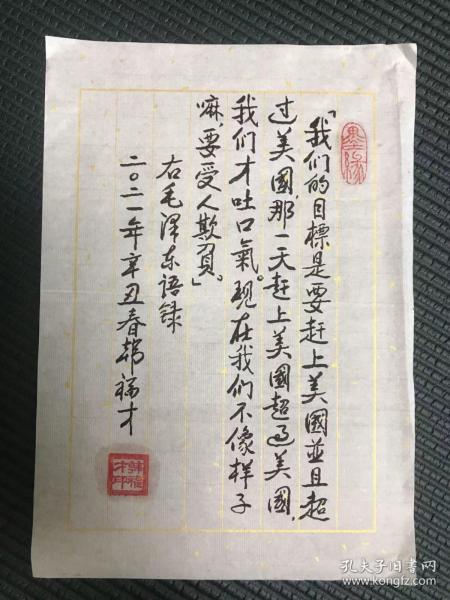 「我们的目標是要赶上美國並且超
过美國,那一天赶上美國超过美國,
我们才吐口氣。现在我们不像样子
嘛,要受人欺負」。
右毛泽东语錄
二〇二一年辛丑春韩福才
墨缘
孔夫子旧书网
www.kongfz.com